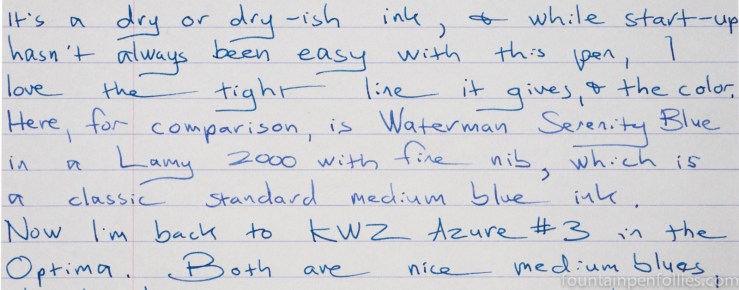 It's a dry or dry-ish ink, & while start-up
hasn't always been easy with this pen, I
love the tight line it gives, & the color.
Here, for comparison, is Waterman Serenity Blue
in a Lamy 2000 with fine nib, which is
a classic standard medium blue ink.
Now I'm back to KWZ Azure #3 in the
Optima. Both are nice medium blues.
fountainpenfollies.com